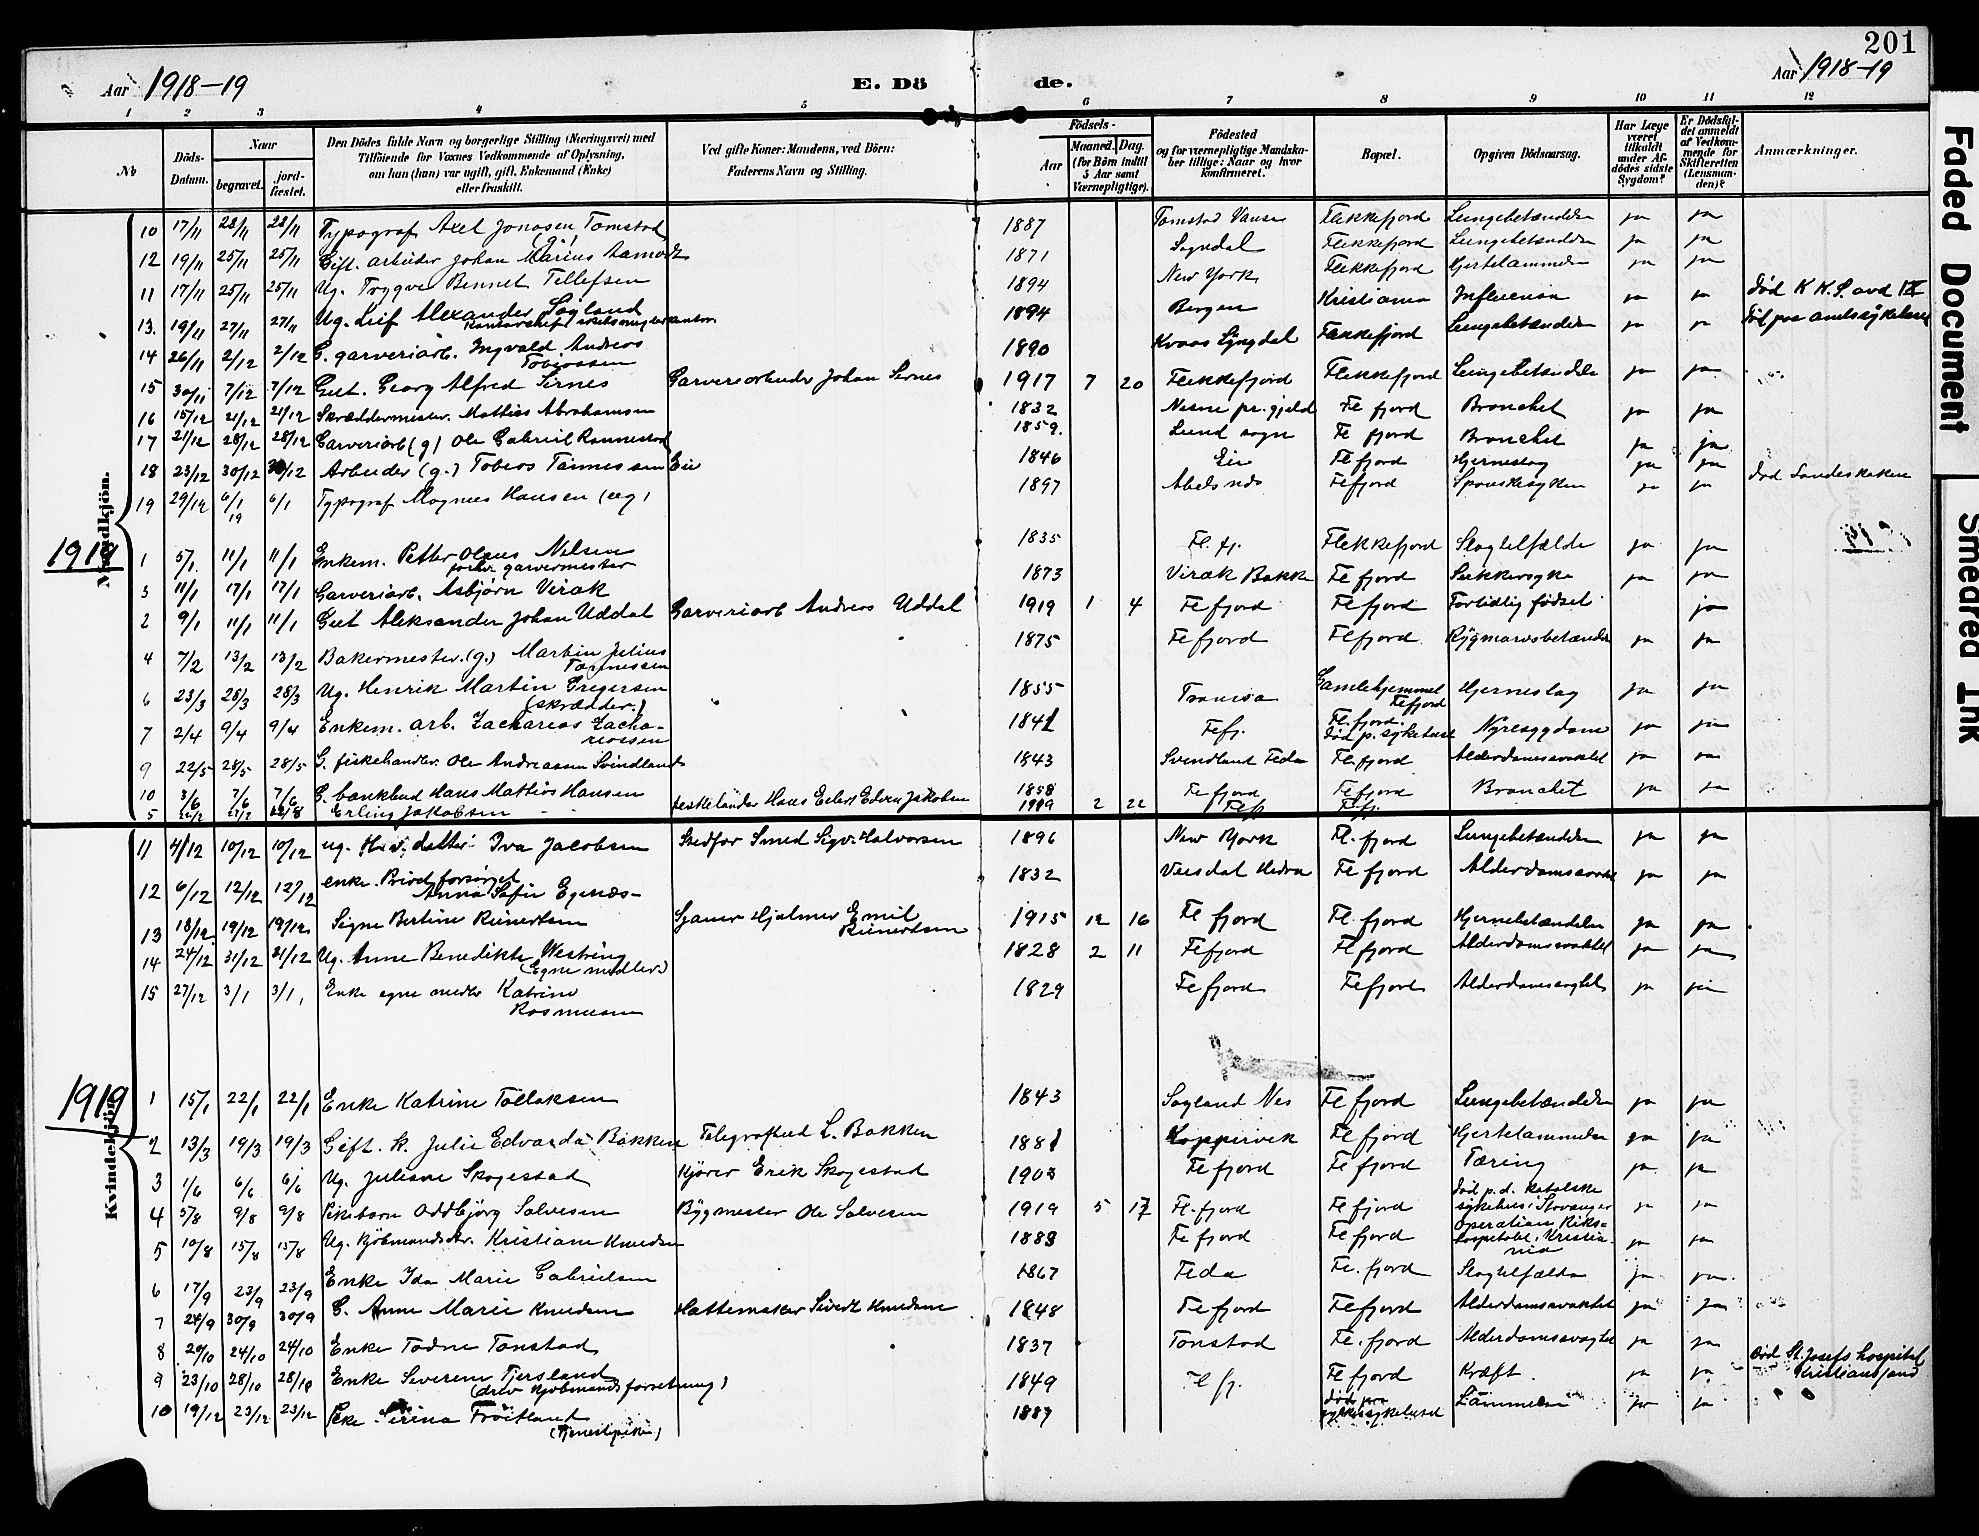 201
Aar 1918-19
E. Dö
de.
Aar 1918-19
1 2 3 4 5 6 7 8 9 10 11 12
No
Döds-Datum.
Naar
begravet.
jordfæstet.
Den Dödes fulde Navn og borgerlige Stilling (Næringsvei) med Tilföiende for Voxnes Vedkommende af Oplysning, om han (hun) var ugift, gift, Enkemand (Enke) eller fraskilt.
Ved gifte Koner: Mandens, ved Börn: Faderens Navn og Stilling.
Födsels-
Aar
Maaned. Dag.
(for Börn indtil 5 Aar samt Værnepligtige).
Födested og for værnepligtige Mandskaber tillige: Naar og hvor konfirmeret.
Bopæl.
Opgiven Dödsaarsag.
Har Læge været tilkaldt under Afdödes sidste Sygdom?
Er Dödsfaldet anmeldt af Vedkommende for Skifteretten (Lensmanden)?
Anmærkninger.
Mandkjön.
10 17/11 28/11 28/11 Typograf Axel Jonasen Tomstad 1887 Tomstad Vanse Flekkefjord Lungebetændelse ja ja
12 19/11 25/11 25/11 Gift. arbeider Johan Marius Aamodt 1871 Sogndal Flekkefjord Lungebetændelse ja ja
11 17/11 25/11 25/11 Ug. Trygve Bennet Tellefsen 1894 New York Flekkefjord Hjertelammelse ja ja
13. 19/11 27/11 27/11 Ug. Leif Alexander Søyland 1894 Bergen Kristiania Influensa ja ja Død K.K.S. avd IX
Død paa amtsykehuset
14 26/11 2/12 2/12 G. garveriarb. Ingvald Andreas Tobiassen 1890 Kvaas Lyngdal Flekkefjord Lungebetændelse ja ja
15 30/11 7/12 7/12 Gut. Georg Alfred Sirnes Garveriarbeider Johan Sirnes 1917 7 20 Flekkefjord Flekkefjord Lungebetændelse ja ja
16 15/12 21/12 21/12 Skræddermester. Mathias Abrahamsen 1832 Nesne pr.gjeld Fl fjord Bronchit ja ja
17 21/12 28/12 28/12 Garveriarb (g) Ole Gabriel Rannestad 1859. Lund sogn Fl fjord Bronchit ja ja
18 23/12 30/12 30/12 Arbeider (g.) Tobias Tønnessen Eie 1846 Eie Fl fjord Hjerneslag ja ja
19 29/12 6/1 19 6/1 Typograf Magnus Hansen (ug) 1897 Abelsnes Flfjord Spanskesyken ja ja død Sandeskaken
1919
1 5/1. 11/1 11/1 Enkem. Petter Olaus Nilsen
forhv. garvermester 1835 Fl. fj. Flekkefjord Slagtilfælde ja ja
3 11/1 17/1 17/1 Garveriarb. Asbjørn Virak 1873 Virak Bakke Fl fjord Sukkersyke ja ja
2 9/1 11/1 11/1 Gut Aleksander Johan Uddal Garveriarb Andreas Uddal 1919 1 4 Fl fjord Fl fjord Fortidlig fødsel ja
4 7/2 13/2 13/2 Bakermester. (g.) Martin Julius Tønnessen 1875 Fl fjord Fl fjord Rygmarvsbetændelse ja ja
6 23/3 28/3 28/3 Ug. Henrik Martin Gregersen
(skrædder.) 1855 Tromsø Gamlehjemmet Flfjord Hjerneslag ja ja
7 2/4 9/4 9/4 Enkem. arb. Zacharias Zachariassen 1841 Flfj. Fl.fjord.
død p. sykehuset Nyresygdom ja ja
9 22/5 28/5 28/5 G. fiskehandler. Ole Andreassen Svindland 1843 Svindland Feda Fl.fjord Alderdomssvakhet ja ja
10 3/6 7/6 7/6 G. bankbud Hans Mathias Hansen 1858 Fl fjord Fl fjord Bronchit ja ja
5 Erling Jakobsen Hans Eilert Edvin Jakobsen 1919 2 22 Fl fj Fl fj
Kvindekjön.
11 4/12 10/12 10/12 ug. Hus. datter. Iva Jacobsen Stedfar Smed Sigv. Halvorsen 1896 New York Fl. fjord Lungebetændelse ja ja
12 6/12 12/12 12/12 enke. Privat forsørget
Anna Sofie Egenæs- 1832 Fl fjord Alderdomssvakhet ja ja
13 13/12 19/12 19/12 Signe Bertine Reinertsen Hjalmar Emil Reinertsen 1915 12 16 Fl fjord Fl. fjord Hjernebetændelse ja ja
14 24/12 31/12 31/12 Ug. Anne Benedikte Westring
(Egne midler) 1828 2 11 Flfjord Fl fjord Alderdomssvakhet ja ja
15 27/12 3/1 3/1, Enke egne midler Katrine Rasmussen 1829 Fl fjord Fl fjord Alderdomssvaghet ja ja
1919
1 15/1 22/1 22/1 Enke Katrine Tollaksen 1843 Søyland Nes Fl fjord Lungebetændelse ja ja
2 13/3 19/3 19/3 Gift. k. Julie Edvarda Bakken Telegrafbud L. Bakken 1881 Koppervik Fl fjord Hjertelammelse ja ja
3 1/6 6/6 6/6 Ug. Juliane Skogestad Kjører Erik Skogestad 1903 Fl fjord Fl fjord Tæring ja ja
4 5/8 9/8 9/8 Pikebarn Oddbjørg Salvesen Bygmester Ole Salvesen 1919 5 17 Fl.fjord Fl fjord død p.d. katolske sykehus i Stavanger ja ja
5 10/8 15/8 15/8 Ug. Kjøbmandsdtr. Kristiane Knudsen 1883 Fl fjord Fl fjord Operation Rikshospitalet, Kristiania ja ja
6 17/9 23/9 23/9 Enke Ida Marie Gabrielsen 1867 Feda Fl. fjord Slagtilfælde ja ja
7 24/9 30/9 30/9 G. Anne Marie Knudsen Hattemaker Sivert Knudsen 1848 Fl fjord Flfjord Alderdomssvakhet ja ja
8 20/10 24/10 24/10 Enke Todne Tonstad 1837 Tonstad Fl. fjord Alderdomssvaghet ja ja
9 23/10 28/10 28/10 Enke Severine Tjersland
(drev Kjøbmandsforretning) 1849 Fl fj. Fl fjord Kræft. ja ja død St. Josefs hospital Kristianssand
10 19/12 23/12 23/12 Pike Serina Frøitland
(Tjenestepike) 1887 død paa sykehuset Lammelse ja ja
Faded Document
Smeared Ink